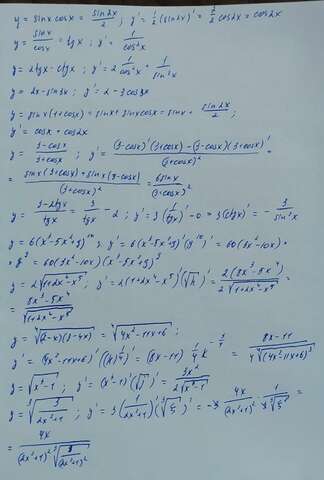 y = sinx cosx = sin2x/2 ; y' = 1/2 (sin2x)' = 2/2 cos2x = cos2x
y = sinx/cosx = tgx ; y' = 1/cos²x
y = 2tgx - ctgx ; y' = 2 1/cos²x + 1/sin²x
y = 2x - sin3x ; y' = 2 - 3cos3x
y = sinx(1+cosx) = sinx + sinxcosx = sinx + sin2x/2 ;
y' = cosx + cos2x
y = (3-cosx)/(3+cosx) ; y' = ((3-cosx)'(3+cosx) - (3-cosx)(3+cosx)')/(3+cosx)² =
= (sinx(3+cosx) + sinx(3-cosx))/(3+cosx)² = 6sinx/(3+cosx)²
y = (3-2tgx)/tgx = 3/tgx - 2 ; y' = 3(1/tgx)' - 0 = 3(ctgx)' = - 3/sin²x
y = 6(x³-5x²+9)¹⁰ ; y' = 6(x³-5x²+9)'(y¹⁰)' = 60(3x²-10x) ·
· y⁹ = 60(3x²-10x)(x³-5x²+9)⁹
y = 2√(1+2x⁴-x⁵) ; y' = 2(1+2x⁴-x⁵)'(√k)' = 2(8x³-5x⁴)/(2√(1+2x⁴-x⁵)) =
= (8x³-5x⁴)/√(1+2x⁴-x⁵)
y = ⁴√((2-x)(3-4x)) = ⁴√(4x²-11x+6) ;
y' = (4x²-11x+6)'((k)^(1/4))' = (8x-11) 1/4 k^(-3/4) = (8x-11)/(4 ⁴√((4x²-11x+6)³))
y = √(x³-1) ; y' = (x³-1)'(√y)' = 3x²/(2√(x³-1))
y = ³√(3/(2x²+1)) ; y' = 3(1/(2x²+1))'(³√y)' = -3 4x/(2x²+1)² · 1/(3 ³√y²) =
= 4x/((2x²+1)² ³√(9/(2x²+1)²))